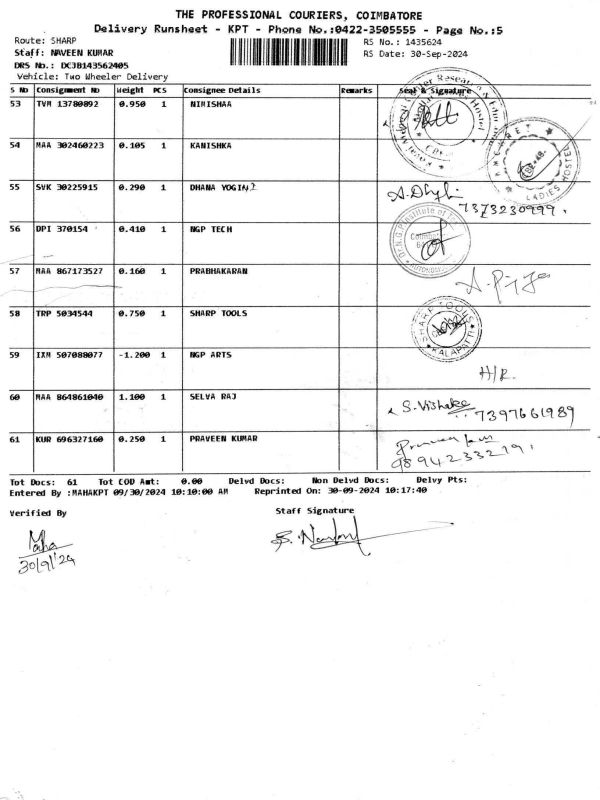 THE PROFESSIONAL COURIERS, COIMBATORE
Delivery Runsheet - KPT - Phone No.:0422-3505555 - Page No.:5
Route: SHARP
RS No.: 1435624
Staff: NAVEEN KUMAR
RS Date: 30-Sep-2024
DRS No.: DCJB143562405
Vehicle: Two Wheeler Delivery
S No Consignment No Weight PCS Consignee Details Remarks Seal & Signature
53 TVM 13780892 0.950 1 NIMISHAA
54 MAA 302460223 0.105 1 KANISHKA
AMCARRET LADIES HOSTEL
55 SVK 30225915 0.290 1 DHANA YOGINI
7373230999.
56 DPI 370154 0.410 1 NGP TECH
57 MAA 867173527 0.160 1 PRABHAKARAN
58 TRP 5034544 0.750 1 SHARP TOOLS
SHARP TOOLS KALAPATTI
59 IXM 507088077 -1.200 1 NGP ARTS
H/R.
60 MAA 864861040 1.100 1 SELVA RAJ
S. Vishaka 7397661989
61 KUR 696327160 0.250 1 PRAVEEN KUMAR
9894233219
Tot Docs: 61 Tot COD Amt: 0.00 Delvd Docs: Non Delvd Docs: Delvy Pts:
Entered By :MAHAKPT 09/30/2024 10:10:00 AM Reprinted On: 30-09-2024 10:17:40
Verified By
Staff Signature
Maha
30/9/24